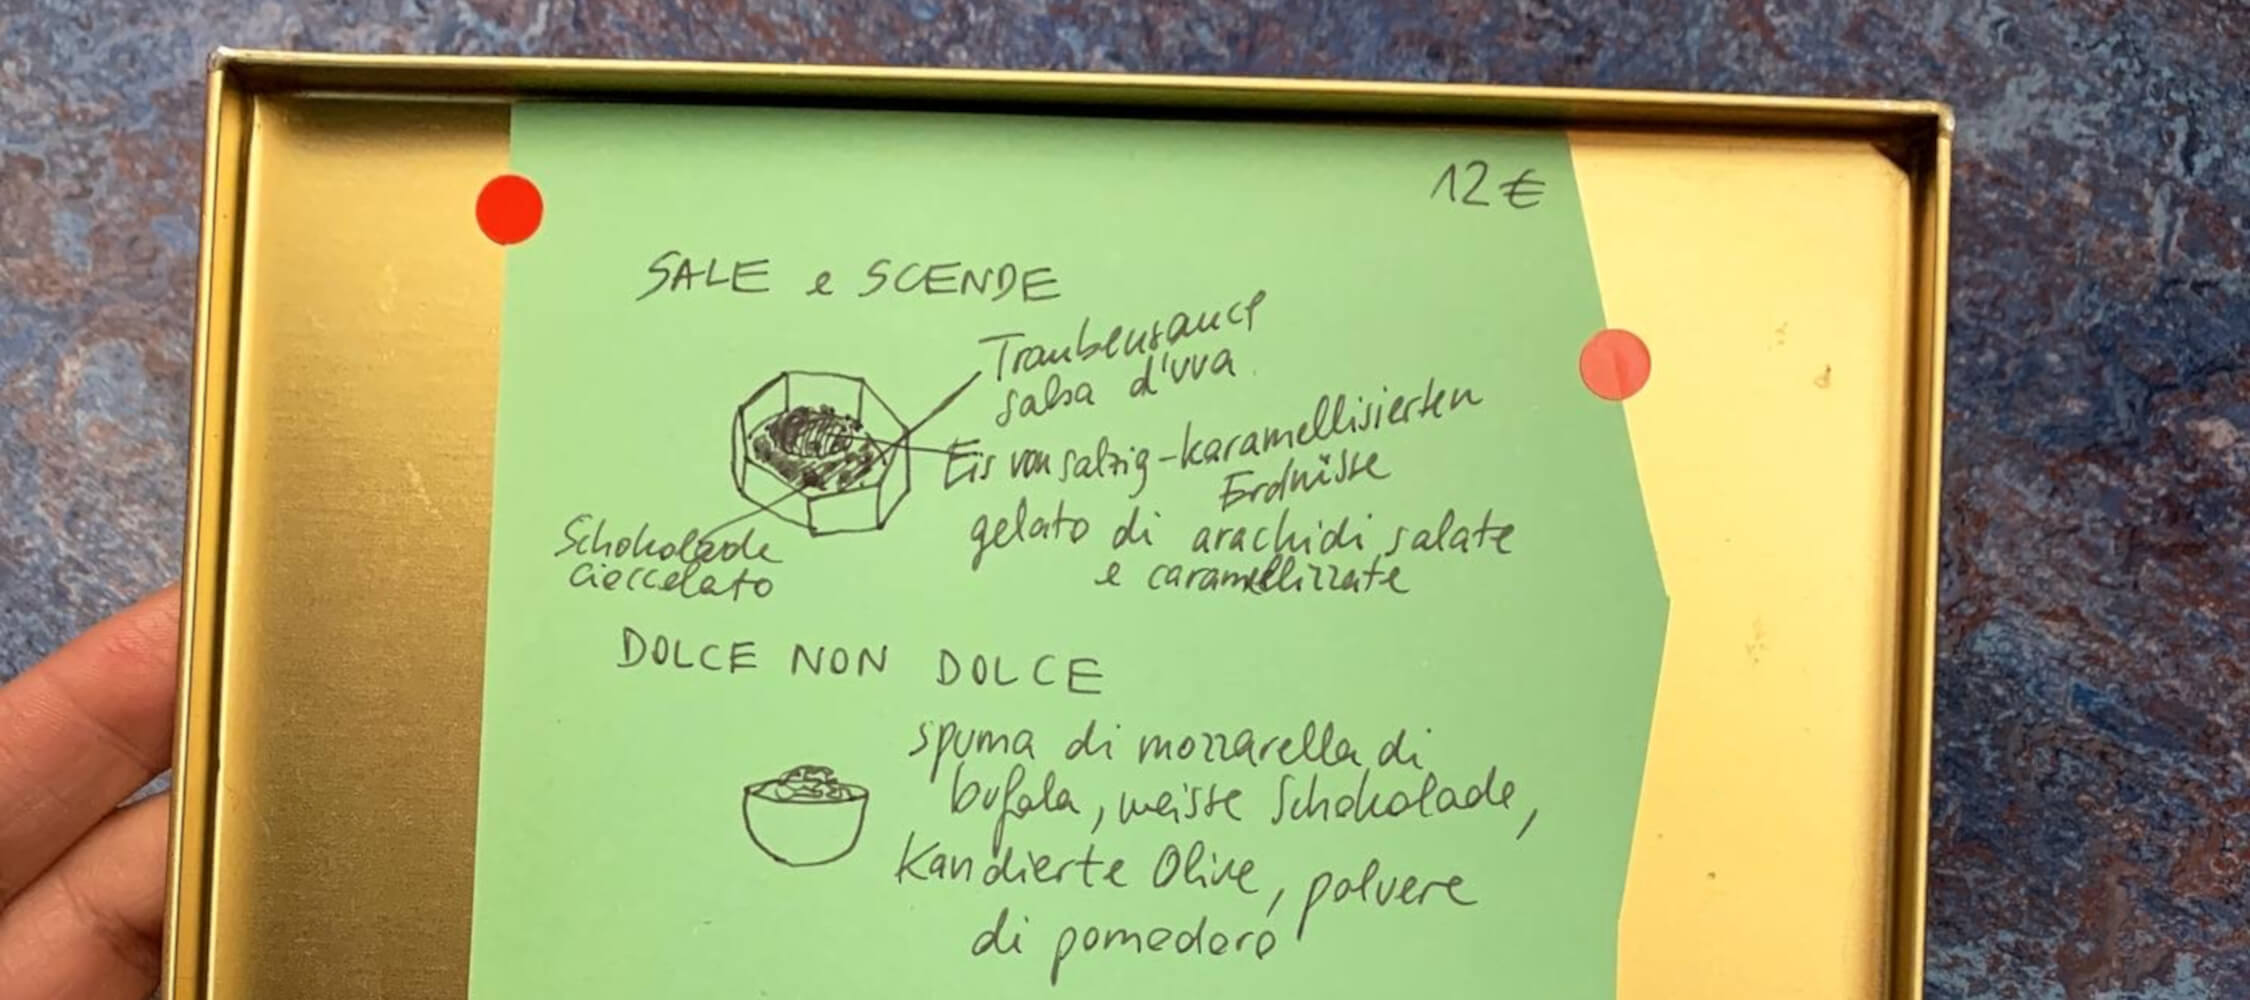 12€
SALE e SCENDE
Traubensauce
salsa d'uva
Eis von salzig-karamellisierten
Erdnüsse
gelato di arachidi salate
e caramellizzate
Schokolade
cioccolato
DOLCE NON DOLCE
spuma di mozzarella di
bufala, weisse Schokolade,
Kandierte Olive, polvere
di pomodoro